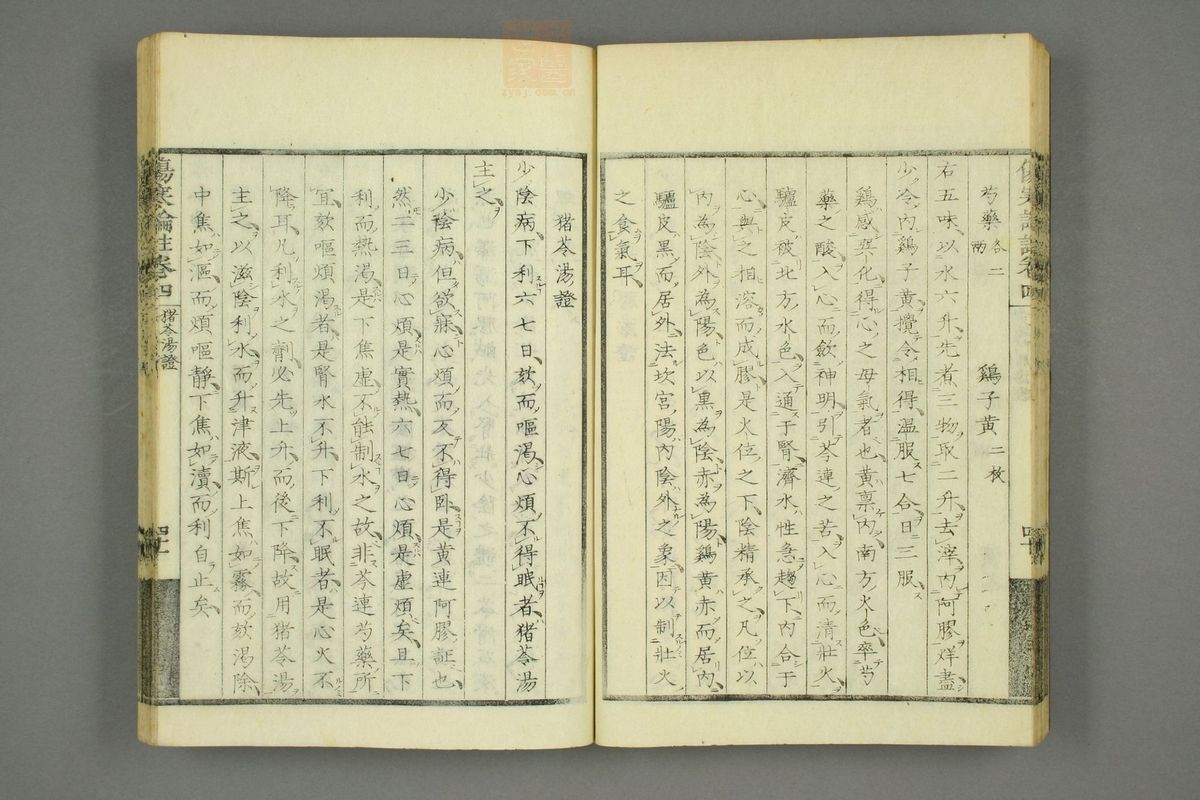 芍藥各二兩 鷄子黃二枚
右五味以水六升先煮三物取二升去滓内阿膠烊盡
少冷内鷄子黃攪令相得温服七合日三服
鷄感巽化得心之母氣者也黃稟南方火色率芍
藥之酸入心而斂神明引芩連之苦入心而清壯火
驢皮被北方水色入通于腎濟水性急趨下内合于
心與之相溶而成膠是火位之下陰精承之凡位以
内為陰外為陽色以黑為陰赤為陽鷄黃赤而居内
驢皮黑而居外法坎宮陽内陰外之象因以制壯火
之食氣耳
猪苓湯證
少陰病下利六七日欬而嘔渴心煩不得眠者猪苓湯
主之
少陰病但欲寐心煩而反不得卧是黃連阿膠証也
然二三日心煩是實熱六七日心煩是虛煩矣且下
利而熱渴是下焦虛不能制水之故非芩連芍藥所
宜欬嘔煩渴者是腎水不升下利不眠者是心火不
降耳凡利水之劑必先上升而後下降故用猪苓湯
主之以滋陰利水而升津液斯上焦如霧而欬渴除
中焦如漚而煩嘔靜下焦如瀆而利自止矣
傷寒論註卷四 猪苓湯證